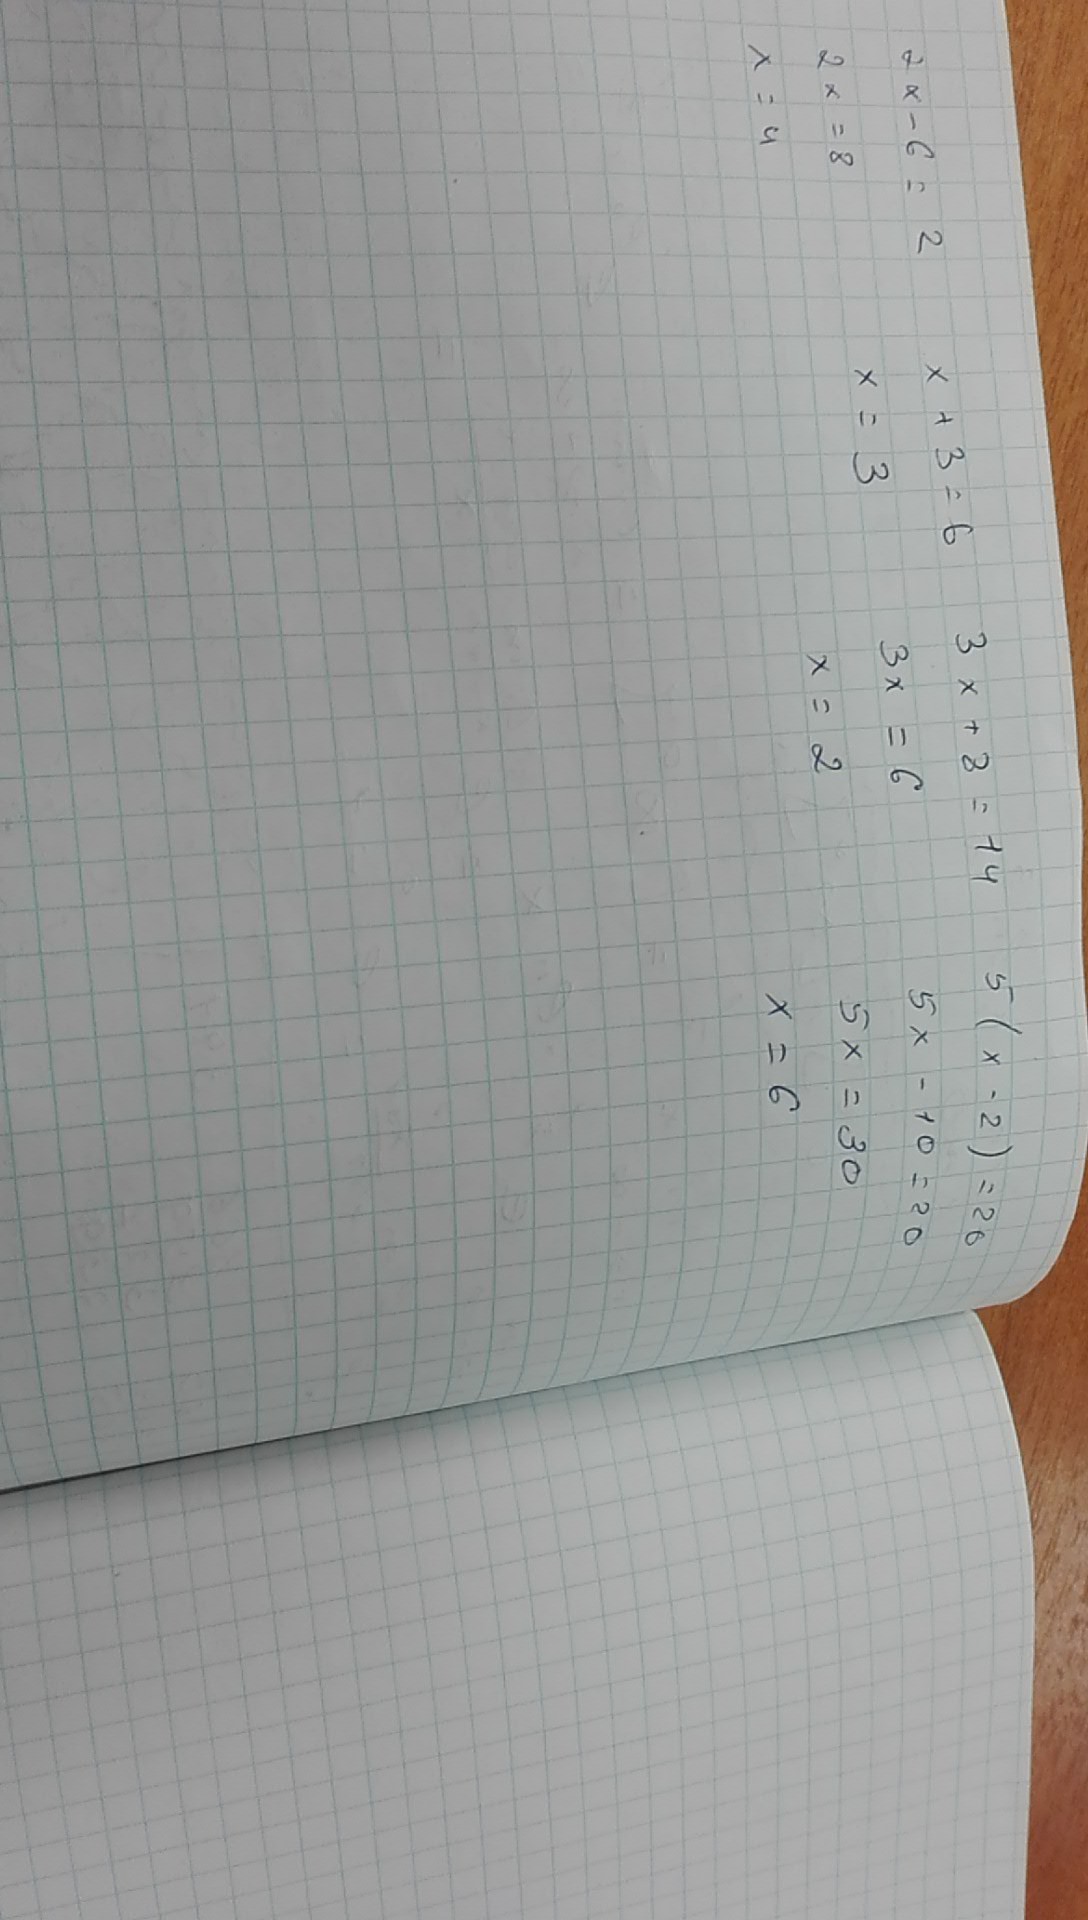 2x-6=2
2x=8
x=4
x+3=6
x=3
3x+8=14
3x=6
x=2
5(x-2)=20
5x-10=20
5x=30
x=6